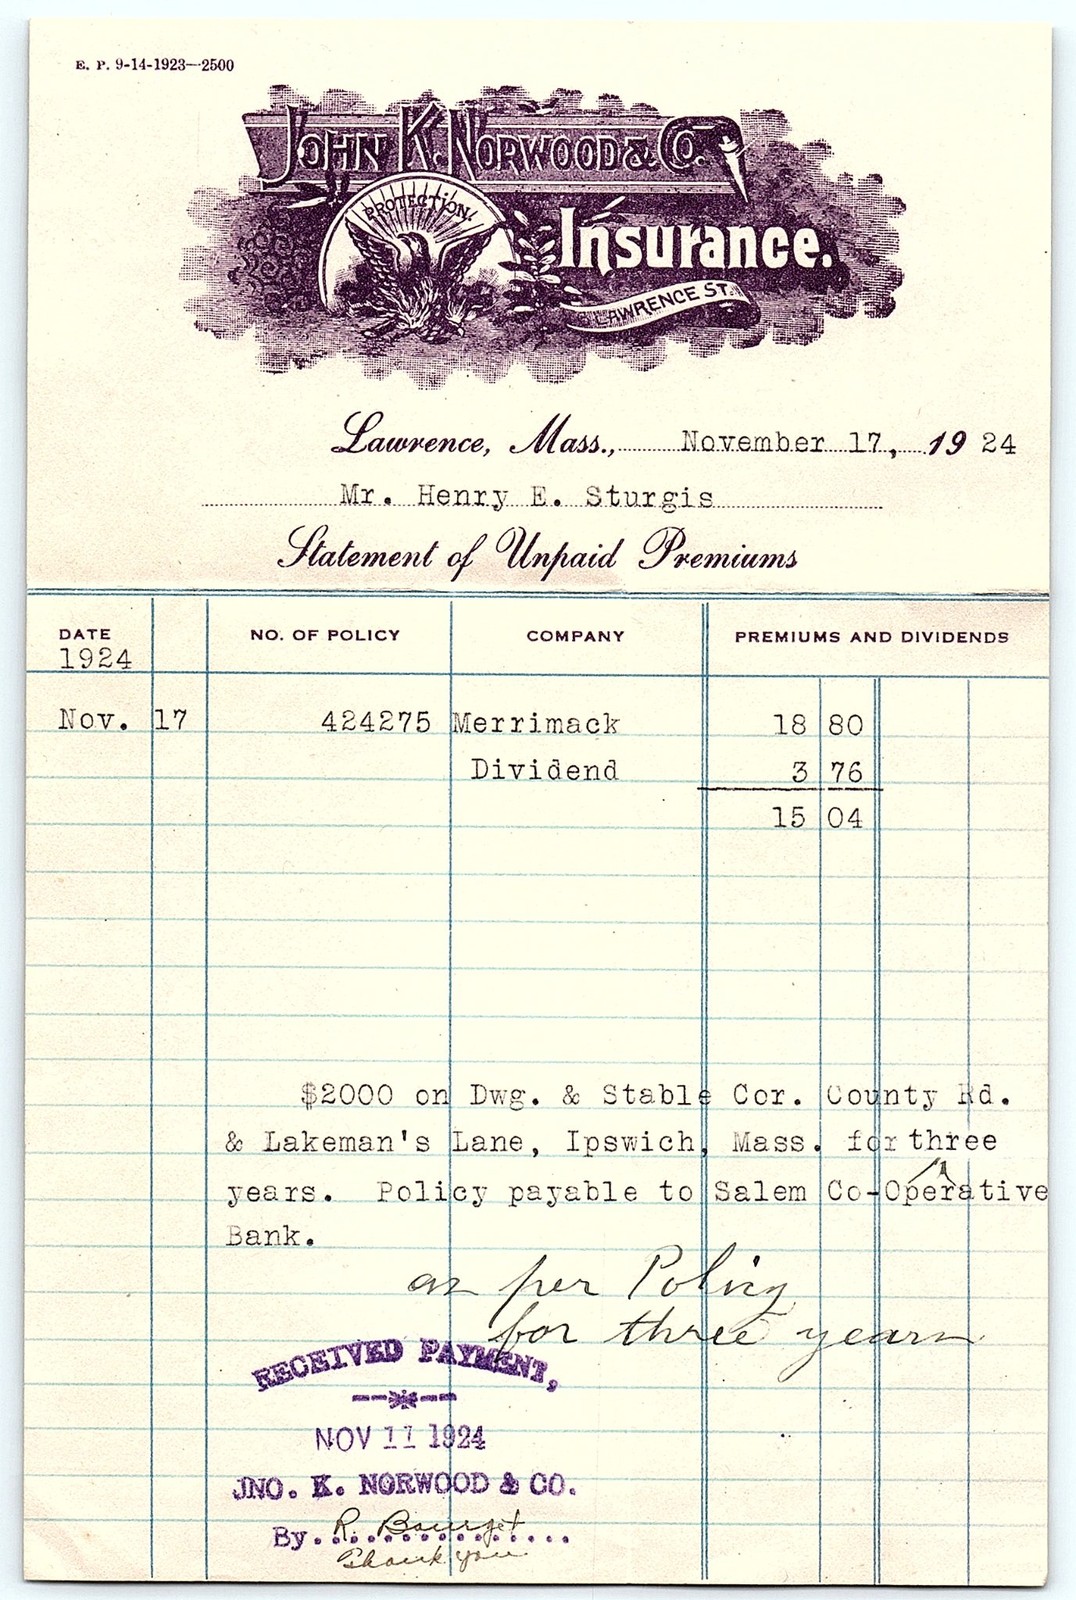 E. P. 9-14-1923—2500
JOHN K. NORWOOD & CO.
PROTECTION
Insurance.
LAWRENCE ST.
Lawrence, Mass., November 17, 19 24
Mr. Henry E. Sturgis
Statement of Unpaid Premiums
DATE NO. OF POLICY COMPANY PREMIUMS AND DIVIDENDS
1924
Nov. 17 424275 Merrimack 18 80
Dividend 3 76
15 04
$2000 on Dwg. & Stable Cor. County Rd.
& Lakeman's Lane, Ipswich, Mass. for three
years. Policy payable to Salem Co-Operative
Bank.
as per Policy
for three years
RECEIVED PAYMENT,
NOV 11 1924
JNO. K. NORWOOD & CO.
By R. Bourget
Thank you